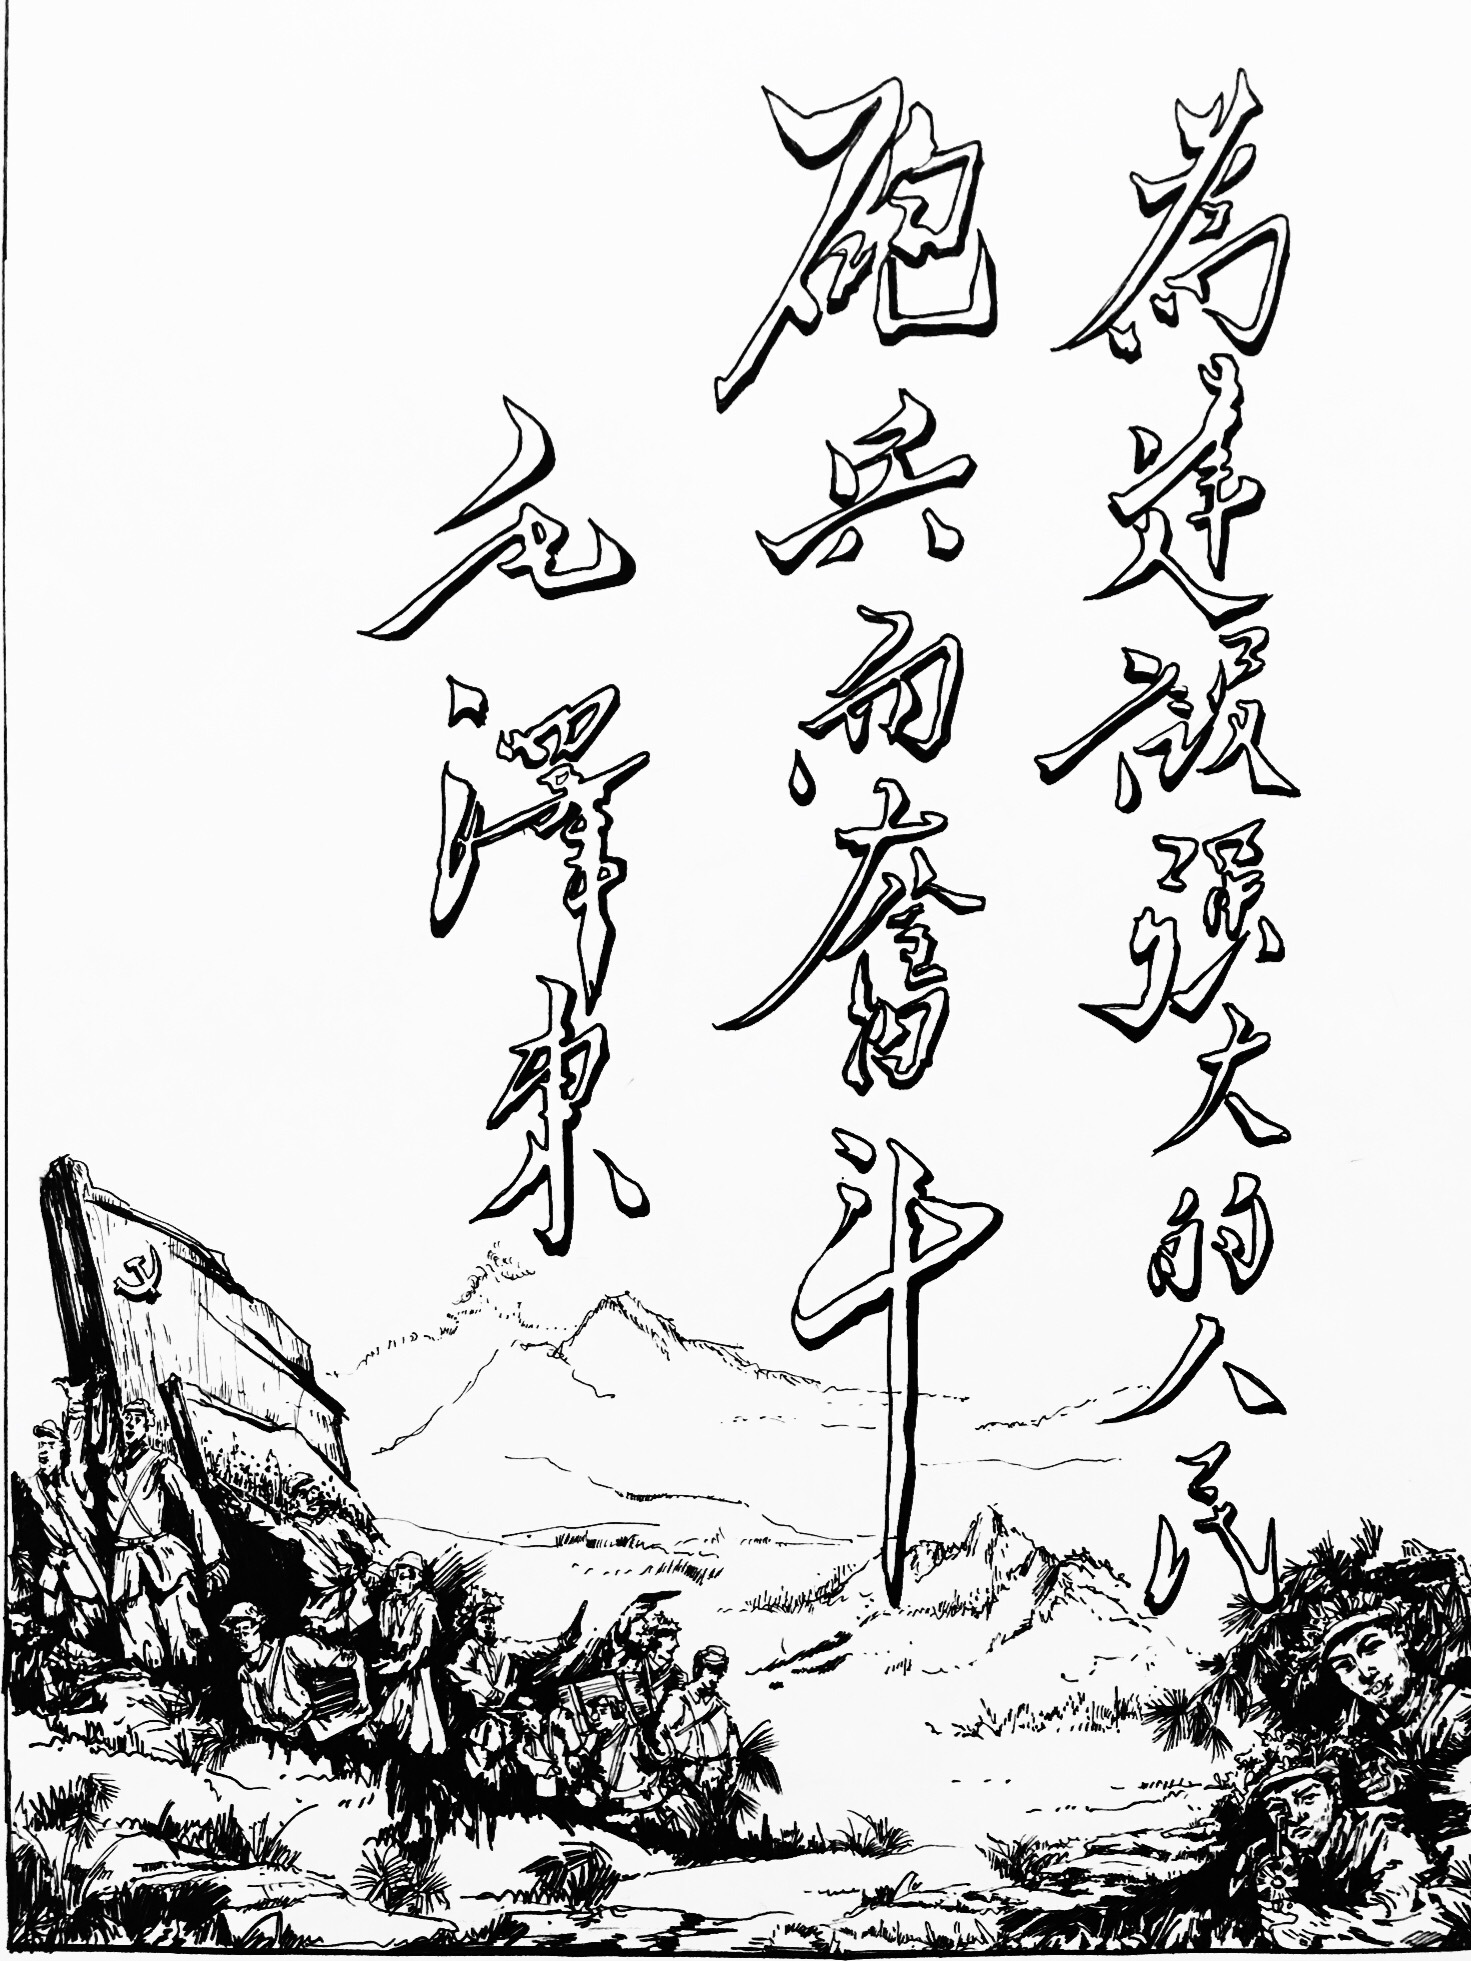 为建設强大的人民
砲兵而奮斗
毛澤東